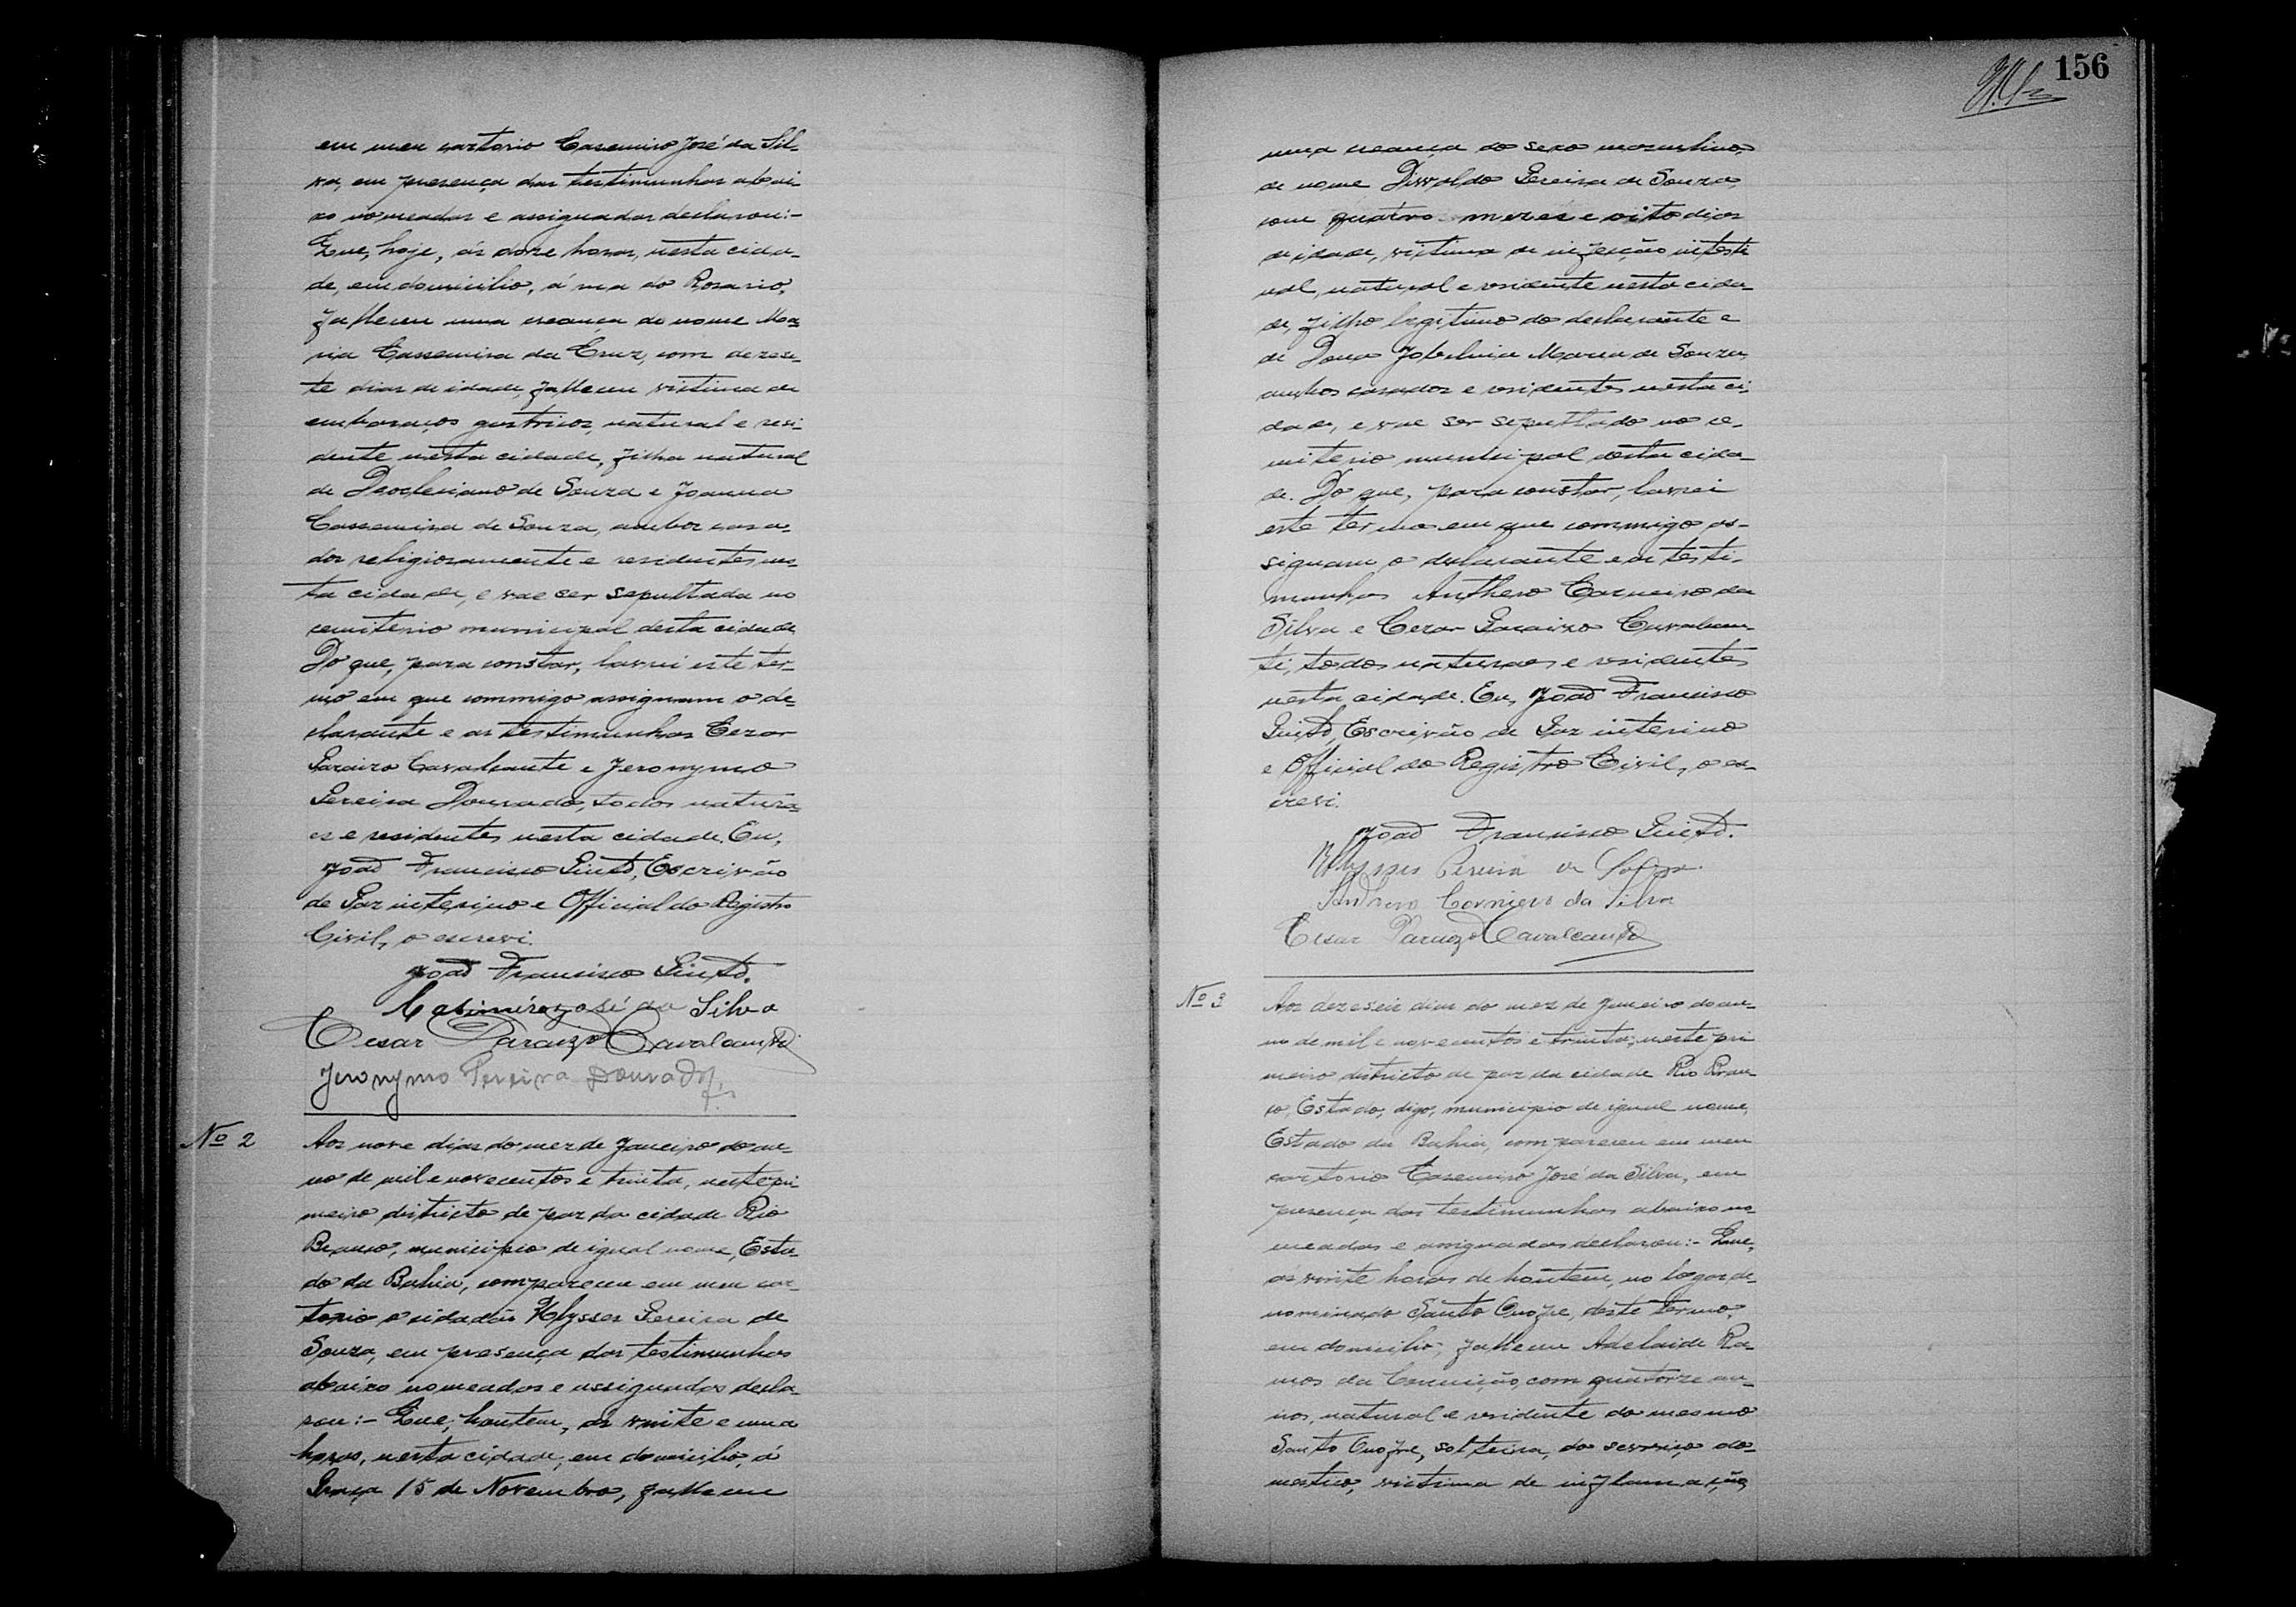 em meu cartorio Casemiro José da Sil-
va, em presença das testimunhas abai-
xo nomeadas e assignadas declarou:-
Que, hoje, ás doze horas, nesta cida-
de, em domicilio, á rua do Rosario,
falleceu uma creança de nome Ma-
ria Cassemira da Cruz, com dezese-
te dias de idade, falleceu victima de
embaraços gastricos, natural e resi-
dente nesta cidade, filha natural
de Deocleciano de Souza e Joanna
Cassemira de Souza, ambos casa-
dos religiosamente e residentes nes-
ta cidade, e vae ser sepultada no
cemiterio municipal desta cidade
Do que, para constar, lavrei este ter-
mo em que commigo assignam o de-
clarante e as testimunhas Cezar
Paraizo Cavalcante e Jeronymo
Pereira Dourado, todos natura-
es e residentes nesta cidade. Eu,
João Francisco Pinto, Escrivão
de Paz interino e Official do Registro
Civil, o escrevi.
João Francisco Pinto.
Casimiro José da Silva
Cesar Paraizo Cavalcanti
Jeronymo Pereira Dourado
Nº 2
Aos nove dias do mez de Janeiro do an-
no de mil e novecentos e trinta, neste pri
meiro districto de paz da cidade Rio
Branco, municipio de igual nome, Esta-
do da Bahia, compareceu em meu car-
torio o cidadão Ulysses Pereira de
Souza, em presença das testimunhas
abaixo nomeadas e assignadas decla-
rou:- Que, hontem, ás vinte e uma
horas, nesta cidade, em domicilio, á
Praça 15 de Novembro, falleceu
156
uma creança do sexo masculino,
de nome Divaldo Pereira de Souza,
com quatro mezes e oito dias
de idade, victima de infecção intesti
nal, natural e residente nesta cida-
de, filho legitimo do declarante e
de Dona Maria de Souza,
ambos casados e residentes nesta ci-
dade, e vae ser sepultado no ce-
miterio municipal desta cida-
de. Do que, para constar, lavrei
este termo em que commigo as-
signam o declarante e as testi-
munhas Anthero Carneiro da
Silva e Cezar Paraizo Cavalcan-
ti, todos naturaes e residentes
nesta cidade. Eu, João Francisco
Pinto, Escrivão de Paz interino
e Official do Registro Civil, o es-
crevi.
João Francisco Pinto.
Ulysses Pereira de Souza.
Anthero Carneiro da Silva
Cesar Paraizo Cavalcanti
Nº 3
Aos dezeseis dias do mez de Janeiro do an-
no de mil e novecentos e trinta, neste pri
meiro districto de paz da cidade Rio Bran-
co, Estado, digo, municipio de igual nome,
Estado da Bahia, compareceu em meu
cartorio Casemiro José da Silva, em
presença das testimunhas abaixo no-
meadas e assignadas declarou:- Que,
ás vinte horas de hontem, no logar de-
nominado Santo Onofre, deste termo,
em domicilio, falleceu Adelaide Ra-
mos da Conceição, com quatorze an-
nos, natural e residente do mesmo
Santo Onofre, solteira, do serviço do-
mestico, victima de inflamação